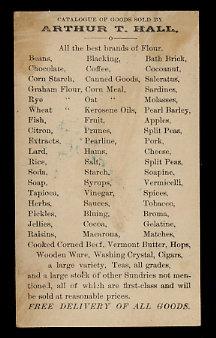 CATALOGUE OF GOODS SOLD BY
ARTHUR T. HALL.
All the best brands of Flour.
Beans, Blacking, Bath Brick,
Chocolate, Coffee, Cocoanut,
Corn Starch, Canned Goods, Saleratus,
Graham Flour, Corn Meal, Sardines,
Rye " Oat " Molasses,
Wheat " Kerosene Oils, Pearl Barley,
Fish, Fruit, Apples,
Citron, Prunes, Split Peas,
Extracts, Pearline, Pork,
Lard, Hams, Cheese,
Rice, Salt, Split Peas,
Soda, Starch, Soapine,
Soap, Syrups, Vermicelli,
Tapioca, Vinegar, Spices,
Herbs, Sauces, Tobacco,
Pickles, Bluing, Broma,
Jellies, Cocoa, Gelatine,
Raisins, Macarona, Matches,
Cooked Corned Beef, Vermont Butter, Hops,
Wooden Ware, Washing Crystal, Cigars,
a large variety, Teas, all grades,
and a large stock of other Sundries not men-
tioned, all of which are first-class and will
be sold at reasonable prices.
FREE DELIVERY OF ALL GOODS.